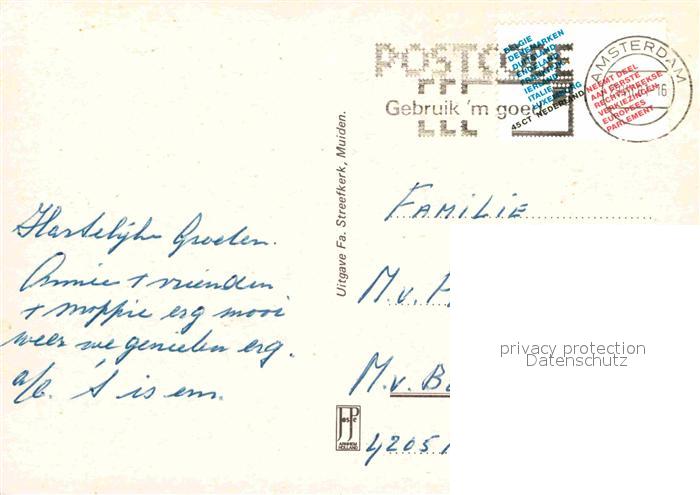 POSTCODE
Gebruik 'm goed
AMSTERDAM
16
BELGIE
DENEMARKEN
DUITSLAND
ENGELAND
FRANKRIJK
IERLAND
ITALIE
LUXEMBURG
45CT NEDERLAND
NEEMT DEEL
AAN EERSTE
RECHTSTREEKSE
VERKIEZINGEN
EUROPEES
PARLEMENT
Hartelijke Groeten.
Annie + vrienden
+ Moppie erg mooi
weer we genieten erg.
a/b. 's is em.
Uitgave Fa. Streefkerk, Muiden.
FAMILIE
M. v.
M. v. B
4205
JosPé
ARNHEM
HOLLAND
privacy protection
Datenschutz